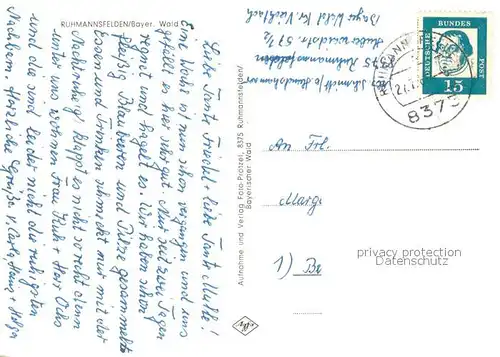 RUHMANNSFELDEN/Bayer. Wald
Liebe Tante Friedel + liebe Tante Mulle!
Eine Woche ist nun schon vergangen und uns
gefällt es hier sehr gut. Nur seit zwei Tagen
regnet und hagelt es. Wir haben schon
fleißig Blaubeeren und Pilze gesammelt.
Essen und Trinken schmeckt nur mit der
Nachtruhe klappt es nicht so recht denn
unter uns wohnen Frau Kuh + Herr Ochs
und die sind leider nicht die ruhigsten
Nachbarn. Herzliche Grüße v. Carla, Hans + Holger
Aufnahme und Verlag Foto-Protzel, 8375 Ruhmannsfelden/
Bayerischer Wald
8375 Ruhmannsfelden
Bayr. Wald Kr. Viechtach
DEUTSCHE
BUNDES
POST
15
8375
An Frl.
Marg
1) Be
privacy protection
Datenschutz